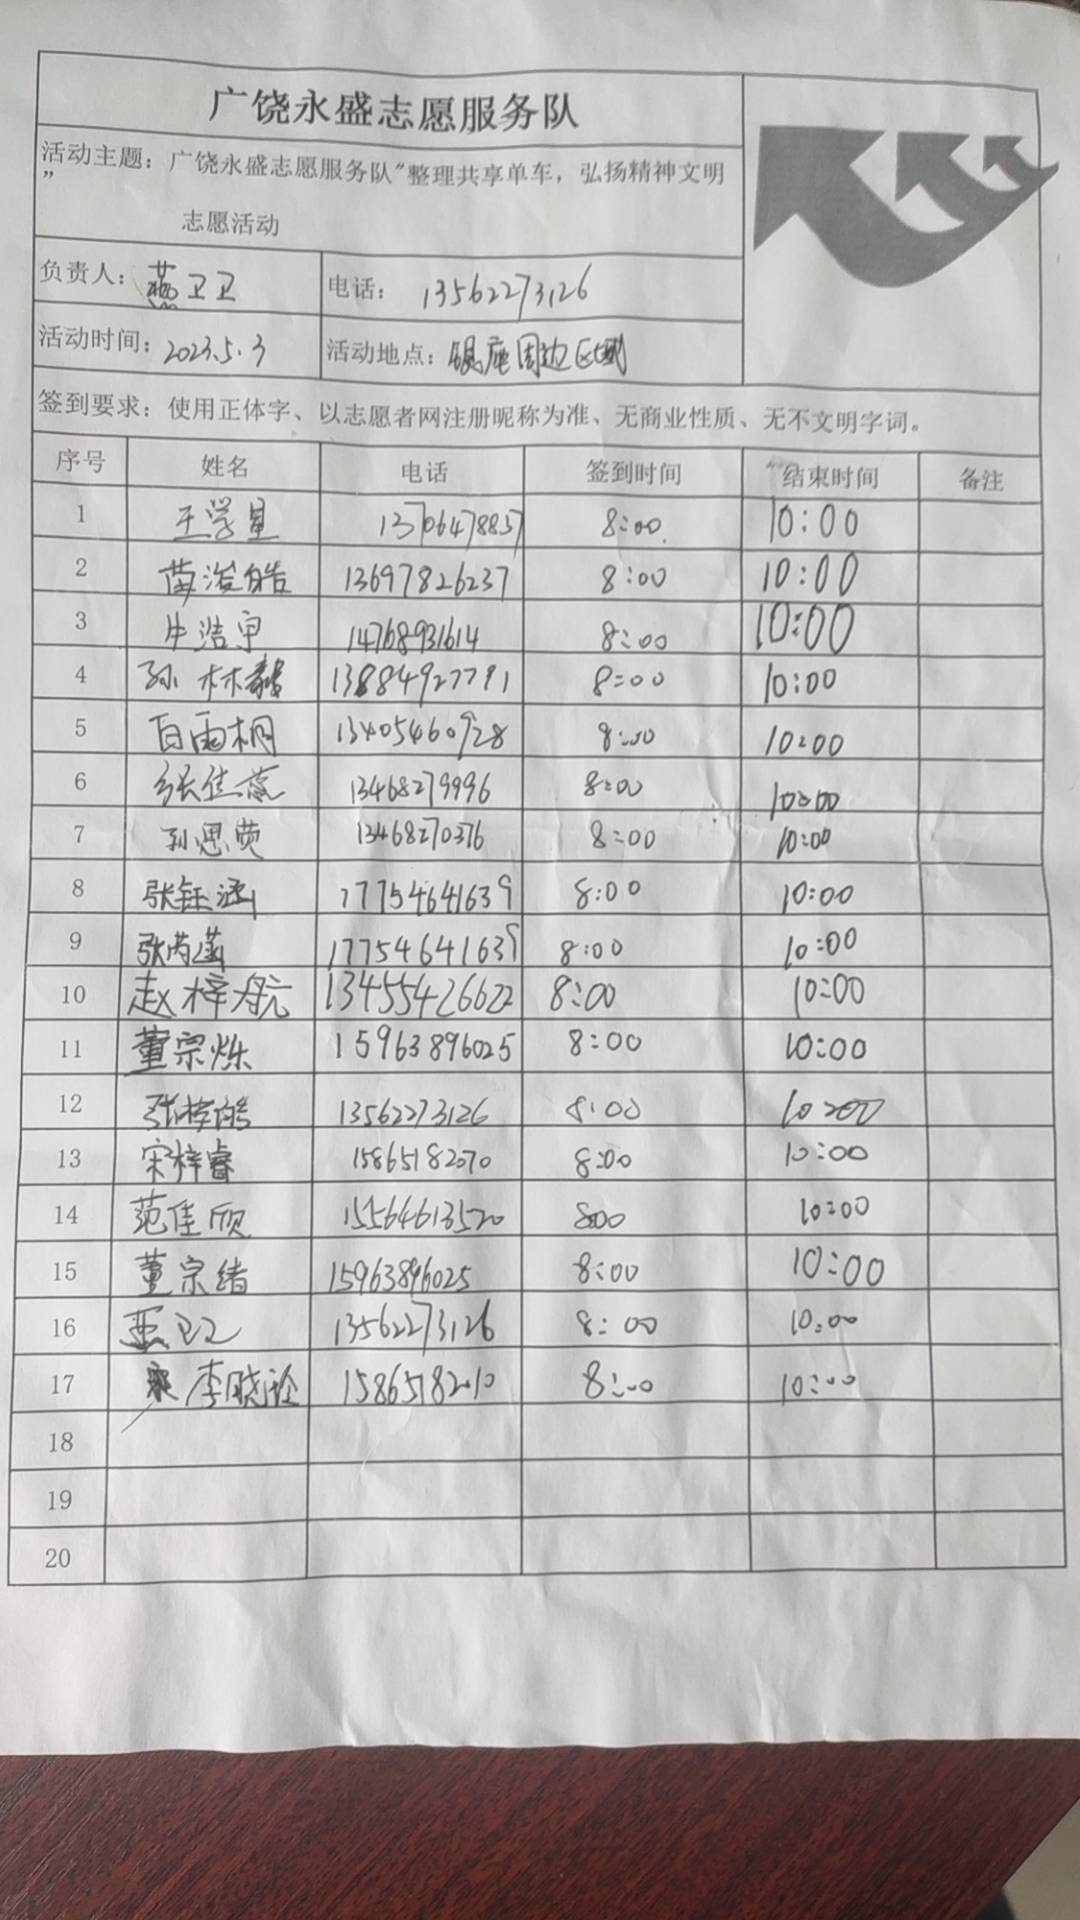 广饶永盛志愿服务队
活动主题：广饶永盛志愿服务队"整理共享单车，弘扬精神文明
"
志愿活动
负责人：燕卫卫 电话：13562273126
活动时间：2023.5.3 活动地点：银座周边区域
签到要求：使用正体字、以志愿者网注册昵称为准、无商业性质、无不文明字词。
序号 姓名 电话 签到时间 结束时间 备注
1 王学星 13706478857 8:00 10:00
2 苗浚皓 13697826237 8:00 10:00
3 牛浩宇 14768931614 8:00 10:00
4 孙林毅 13884927791 8:00 10:00
5 白雨桐 13405460928 8:00 10:00
6 张佳蕊 13468279996 8:00 10:00
7 孙思荧 13468270376 8:00 10:00
8 张钰涵 17754641639 8:00 10:00
9 张芮菡 17754641639 8:00 10:00
10 赵梓航 13455426622 8:00 10:00
11 董宗烁 15963896025 8:00 10:00
12 张梓皓 13562273126 8:00 10:00
13 宋梓睿 15865182070 8:00 10:00
14 范佳欣 15564613520 8:00 10:00
15 董宗绪 15963896025 8:00 10:00
16 燕卫卫 13562273126 8:00 10:00
17 李晓 15865182010 8:00 10:00
18
19
20